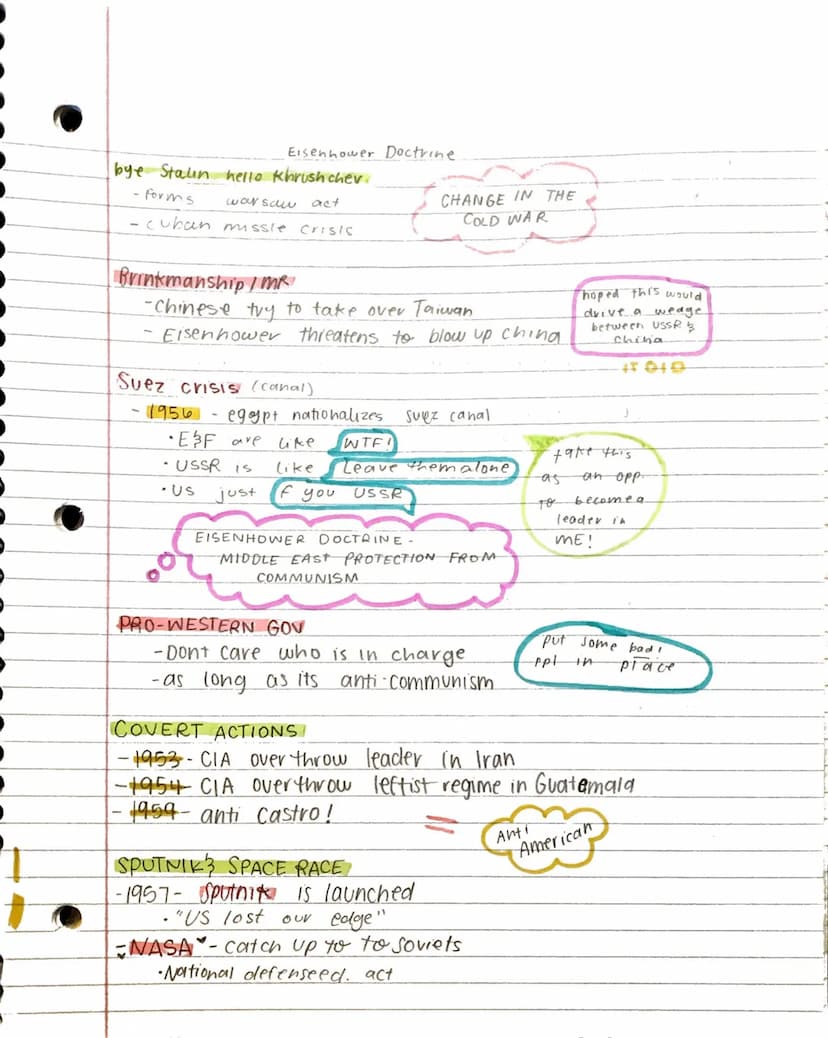 Eisenhower Doctrine
bye Stalin hello Khrushchev.
- forms warsaw act
- cuban missle crisis
CHANGE IN THE
COLD WAR
Brinkmanship / MR
- Chinese try to take over Taiwan
- Eisenhower threatens to blow up china
hoped this would
drive a wedge
between USSR &
china
IT DID
Suez crisis (canal)
- 1956 - egypt nationalizes suez canal
• E&F are like WTF!
• USSR is like Leave them alone
• US just f you USSR
take this
as an opp.
to become a
leader in
ME!
EISENHOWER DOCTRINE -
MIDDLE EAST PROTECTION FROM
COMMUNISM
PRO-WESTERN GOV
- Dont care who is in charge
- as long as its anti-communism
put some bad
ppl in place
COVERT ACTIONS
- 1953 - CIA overthrow leader in Iran
- 1954 - CIA overthrow leftist regime in Guatemala
- 1959 - anti Castro!
= Anti
American
SPUTNIK & SPACE RACE
- 1957 - Sputnik is launched
• "US lost our edge"
- NASA - catch up to to soviets
• National defenseed. act